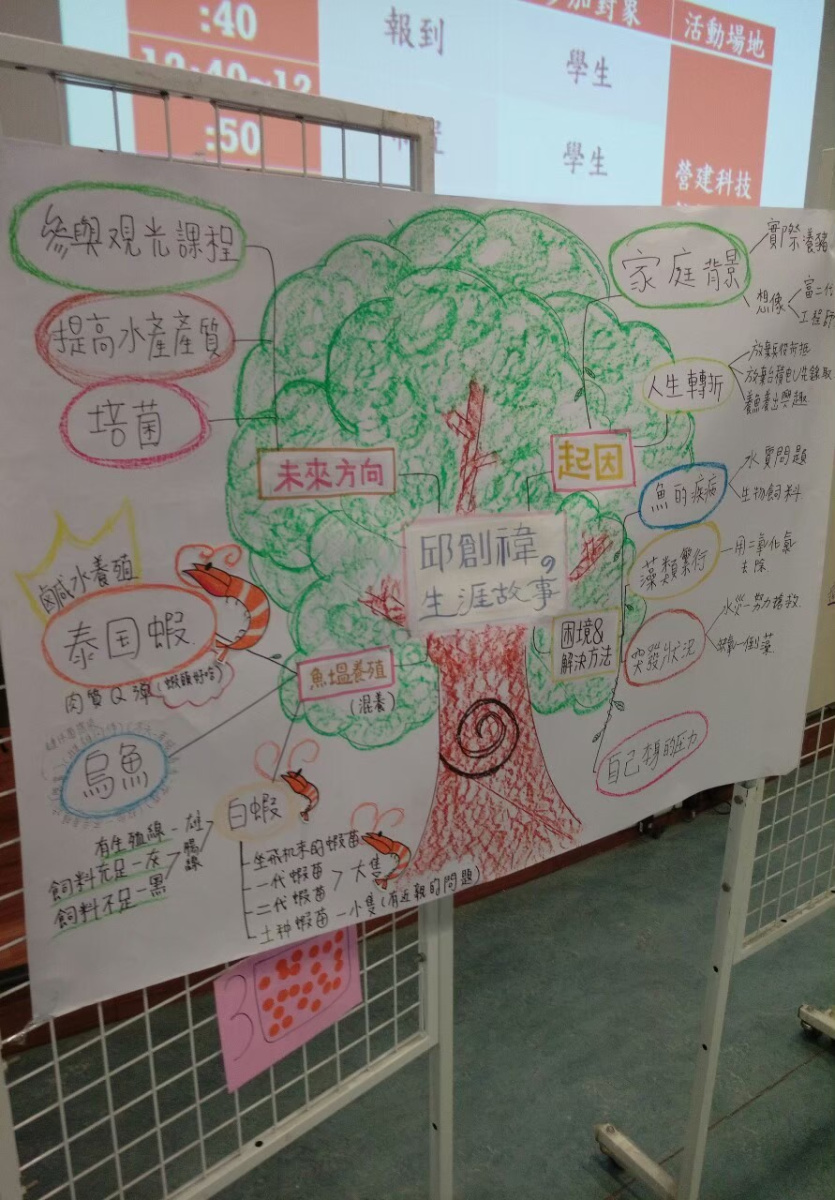 :40
報到
學生
活動場地
:50
學生
營建科技
參與观光課程
提高水產產質
培菌
未來方向
家庭背景
實際養豬
想像
富二代
工程師
起因
人生轉折
養魚養出興趣
邱創禕の
生涯故事
困境&
解決方法
魚的疾病
水質問題
生物飼料
藻類繁衍
用二氧化氯
去除
突發狀況
水災－努力搶救
自己本身的壓力
鹹水養殖
泰国蝦
肉質Q彈(蝦頭好吃)
魚塭養殖
(混養)
烏魚
白蝦
有生殖線－雄
飼料充足－灰
飼料不足－黑
腸
線
坐飛机来的蝦苗
一代蝦苗
二代蝦苗 > 大隻
土种蝦苗－小隻(有近親的問題)
3